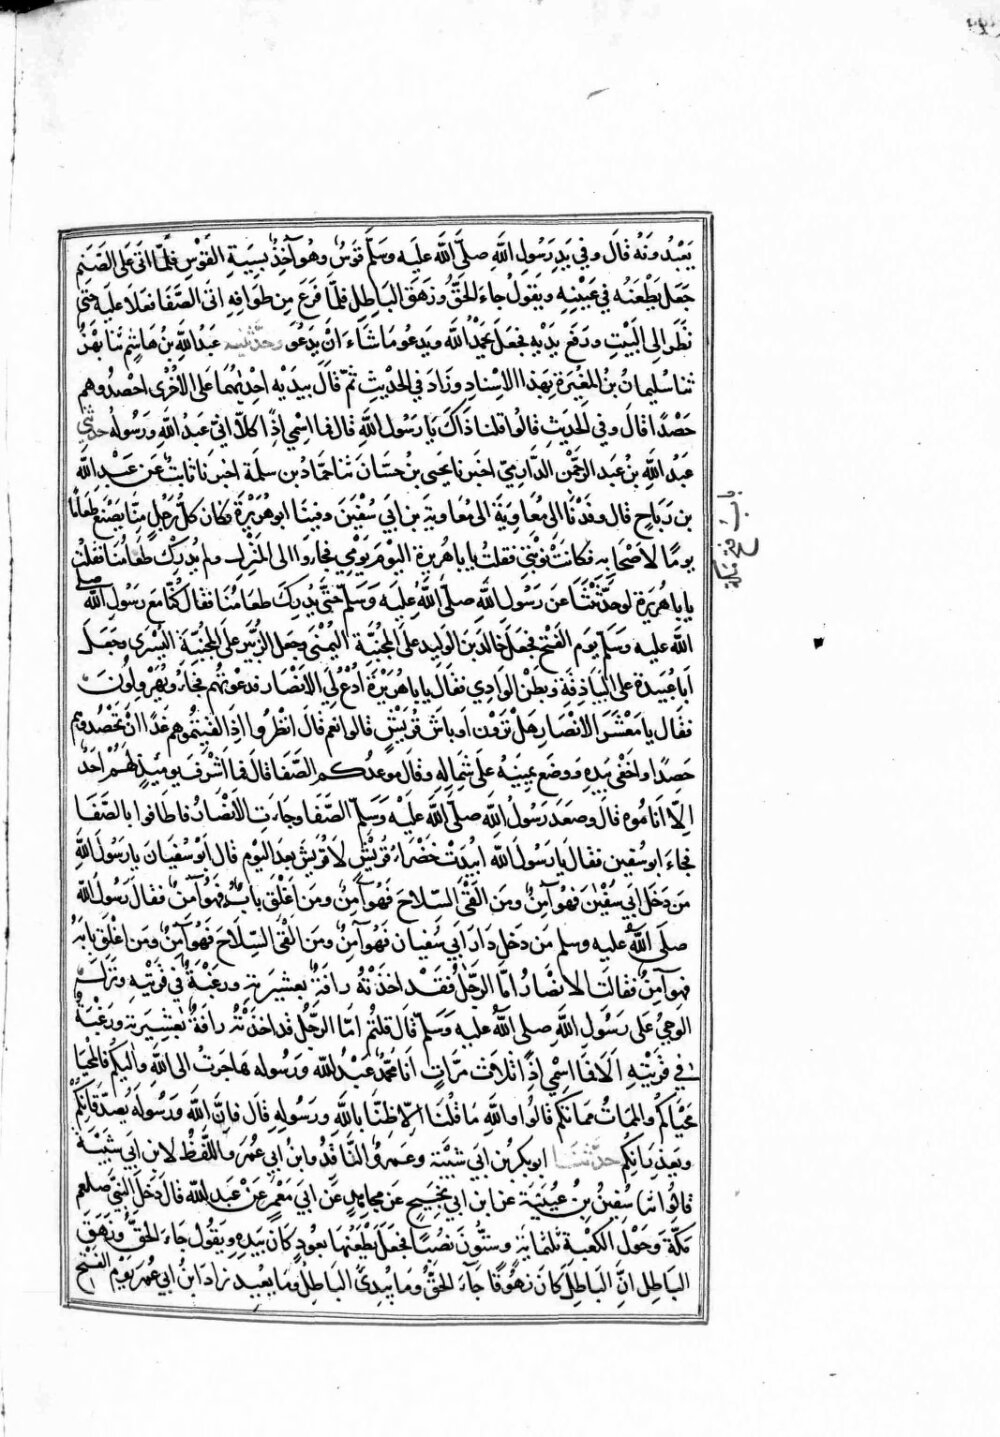 يَعْبُدُونَهُ قَالَ وفي يَدِ رَسُولِ اللَّهِ صلَّى اللَّه عليه وسلَّم قَوْسٌ وهُو آخِذٌ بِسِيَةِ القَوْسِ فلمَّا اتَى عَلى الصَّنَمِ
جَعَل يَطْعَنُهُ في عَيْنِهِ ويَقُولُ جاءَ الحَقُّ وزَهَقَ البَاطِل فلمَّا فرَغ مِن طَوَافِهِ اتَى الصَّفَا فعَلَا عليه حتى
نَظَر الى البَيْتِ ورَفَع يَدَيْهِ فجَعَل يَحْمَدُ اللَّه ويَدعُو مَا شَاءَ انْ يَدعُوَ وحدَّثنيه عبدُ اللَّهِ بنُ هَاشِم ثنا بَهْزٌ
ثنا سُليمانُ بنُ المُغِيرَةِ بِهَذا الاِسْنادِ وزَادَ في الحَدِيثِ ثمّ قَالَ بِيدَيْهِ احْدَيهُمَا عَلى الاُخْرَى احْصُدُوهم
حَصْدًا قَالَ وفي الحَدَيثِ قالُوا قلنا ذَاكَ يَا رَسُولَ اللَّهِ قالَ فما اسْمِي اذًا كلَّا انِّي عَبدُ اللَّهِ ورَسُولُهُ حدثني
عَبدُ اللَّهِ بنُ عَبدِ الرَّحْمٰنِ الدَّارِمِيّ اخبرنا يَحْيى بنُ حَسَّانَ ثنا حمَّادُ بن سلَمة اخبرنا ثابتٌ عَن عَبْدِ اللَّه
بن رَبَاحٍ قال وفَدْنَا الى مُعَاوِيَةَ الى مُعَاويةَ بنِ ابي سُفْيٰنَ وفينَا ابو هُرَيْرَةَ فكان كلُّ رَجُلٍ مِنَّا يَصْنَع طَعَامًا
يومًا لاَصْحَابِه فكانَتْ نَوْبَتِي فقلتُ يا باهُريرةَ اليَوْمُ يَوْمِي فجاؤوا الى المَنْزِل ولم يُدرِكْ طَعَامُنَا فقلتُ
يا باهُريَرةَ لوحَدَّثْتَنَا عَن رَسُولِ اللَّهِ صلَّى اللَّه عليهِ وَسَلَّم حتَّى يُدرِكَ طعَامُنَا فقال كنَّا مَع رَسُولِ اللَّه صلى
اللَّه عليه وسَلَّم يَوم الفَتْح فجعَل خالدَ بنَ الوَليدِ عَلَى المجنِّبَةِ اليُمْنَى وجعَل الزُّبَيرَ عَلَى المُجنِّبَةِ اليُسْرى وجعَل
اَبا عُبيدةَ على البَيَاذِقَةِ وبَطْنِ الوَادِي فقال يا باهُرَيْرَةَ اُدْعُ لِي الاَنْصَارَ فدعَوْتُهُم فجَاؤُا يُهَرْوِلُونَ
فقَال يا مَعْشَرَ الاَنْصَارِ هَلْ تَرَوْنَ اَوباشَ قُرَيْشٍ قالوا نعَم قالَ انظُرُوا اذَا لَقِيتُمُوهم غدًا انْ تَحْصُدُوهم
حَصدًا واخْفَى بِيَدِهِ ووَضَع يَمِينَه عَلَى شِمَالِه وقالَ موعِدُكم الصَّفَا قَالَ فما اَشْرَفَ يومَئذٍ لهُم احَدٌ
الَّا اَنامُوه قال وصعَد رَسُولُ اللَّهِ صلَّى اللَّه عَلَيْهِ وَسَلَّم الصَّفَا وجاءتِ الاَنْصَارُ فاطَافوا بالصَّفَا
فجاءَ ابو سُفين فقَال يا رَسُول اللَّه اُبِيدَتْ خَضْرَاءُ قُرَيْشٍ لا قُرَيشَ بعدَ اليَوم قال ابُو سُفيَانَ يا رَسُولَ اللَّهِ
مَن دَخَلَ ابي سُفْيٰنَ فَهُو آمِنٌ ومَن اَلْقَى السِّلَاحَ فَهُو آمِنٌ ومَن اَغْلَقَ بابَهُ فهُو آمنٌ فقَالَ رَسُولُ اللَّهِ
صلَّى اللَّه عليه وسلم مَن دَخل دَارَ ابي سُفيان فَهُو آمِنٌ ومَن اَلْقَى السِّلَاحَ فَهُو آمِنٌ ومَن اغْلَقَ بَابَهُ
فهو آمِنٌ فقالتِ الانصَارُ امَّا الرَّجُلُ فَقَد اخَذَتْهُ رَافَةٌ بعشِيرَتِه ورَغبَةٌ في قَرْيَتِهِ ونَزَل
الوحيُ عَلى رَسُولِ اللَّهِ صلى اللَّهُ عليه وَسَلَّم قَالَ قلتُم امّا الرَّجُل قد اخَذَتْهُ رافَةٌ بعَشِيرَتِه ورَغْبَةٌ
في قَرْيَتِهِ اَلَا فمَا اسْمِي اذًا ثلاثَ مَرَّاتٍ اَنَا مُحَمَّدٌ عَبْدُ اللَّه ورَسُوله هَاجَرتُ الى اللَّهِ واليكُم فالمَحْيَا
مَحْيَاكُم والممَاتُ ممَاتكم قالُوا واللَّهِ مَا قُلْنَا الَّا ظَنًّا باللَّه ورَسُولِهِ قَالَ فانَّ اللَّهَ ورَسُولَهُ يُصدِّقانكُم
ويعذِرَانِكُم حدَّثنَا ابو بكرُ بن ابي شَيْبَة وعَمرٌو النَّاقدُ وابنُ ابي عُمَر واللَّفظُ لابن ابي شَيْبَةَ
قالُوا انا سفْينُ بنُ عُيَيْنَة عَن ابن ابي نَجِيحٍ عَن مجاهِدٍ عَن ابي مَعْمَرٍ عَنْ عَبد اللَّه قالَ دَخل النَّبيّ صلعم
مَكّةَ وَحَوْل الكَعْبةِ ثلثمائةٍ وسِتُّونَ نصُبًا فجعَل يَطْعُنُها بعُودٍ كَانَ بِيَدِهِ ويقُول جاءَ الحَقُّ وزَهَقَ
البَاطِل انَّ البَاطِلَ كانَ زَهُوقًا جَاءَ الحَقُّ ومَا يُبْدِئُ البَاطلُ ومَا يعُيد زادَ ابنُ ابي عمر يَوْم الفَتْح
باب فتح مكة